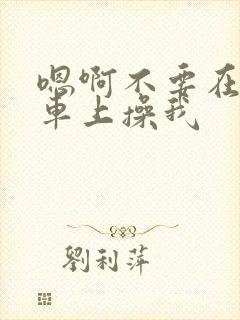 嗯啊不要在
車上操我
劉利萍